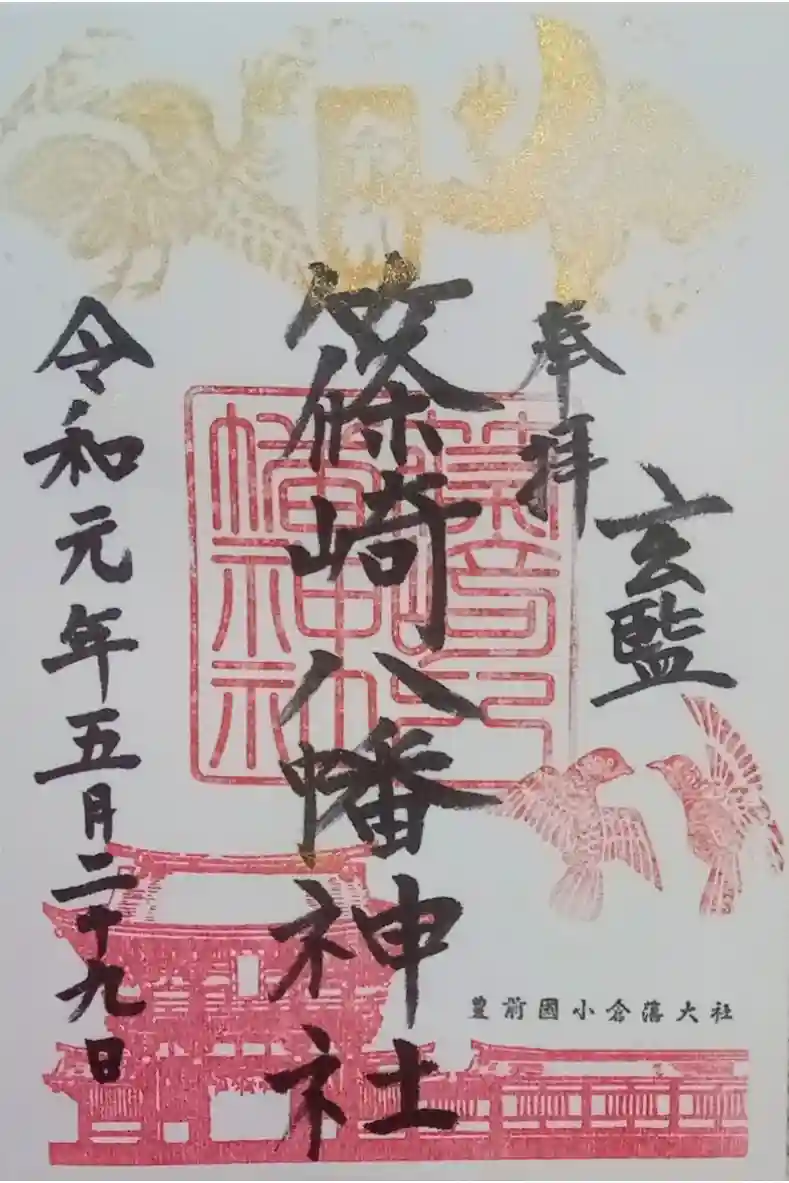 玄監
奉拝
篠崎八幡神社
令和元年五月二十九日
豊前國小倉藩大社